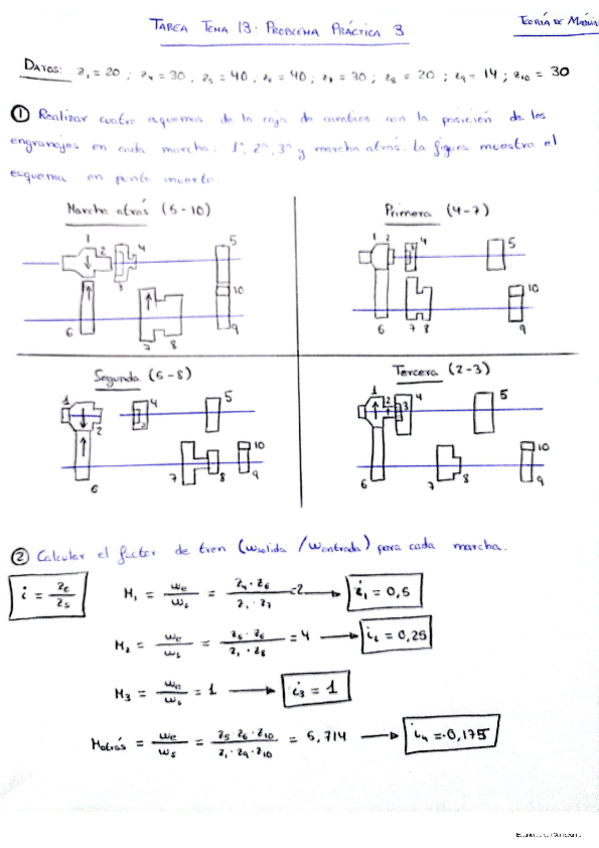 TAREA TEMA 13: PROBLEMA PRÁCTICA 3
TEORÍA DE MÁQUIN
DATOS: z1 = 20 ; z4 = 30 , z5 = 40 ; z6 = 40 ; z7 = 30 ; z8 = 20 ; z9 = 14 ; z10 = 30
① Realizar cuatro esquemas de la caja de cambios con la posición de los
engranajes en cada marcha: 1ª, 2ª, 3ª y marcha atrás. La figura muestra el
esquema en punto muerto.
Marcha atrás (5-10)
1 2 3 4 5 6 7 8 9 10
Primera (4-7)
1 2 3 4 5 6 7 8 9 10
Segunda (5-8)
1 2 3 4 5 6 7 8 9 10
Tercera (2-3)
1 2 3 4 5 6 7 8 9 10
② Calcular el factor de tren (ωsalida / ωentrada) para cada marcha.
i = ze/zs
M1 = ωe/ωs = z4 · z6 / z1 · z7 = 2 → i1 = 0,5
M2 = ωe/ωs = z5 · z6 / z1 · z8 = 4 → i2 = 0,25
M3 = ωe/ωs = 1 → i3 = 1
Matrás = ωe/ωs = z5 · z6 · z10 / z1 · z9 · z10 = 5,714 → i4 = 0,175